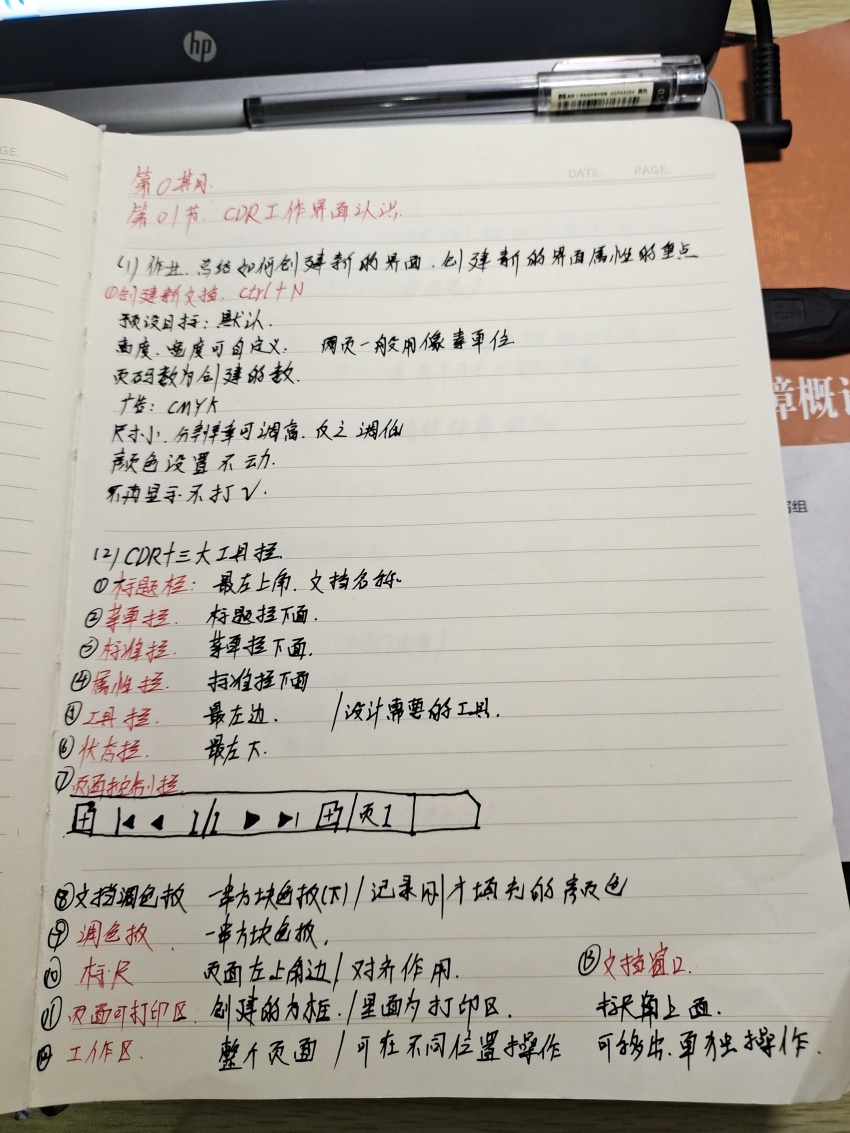 hp
DATE. PAGE.
GE.
第0其月.
第01节. CDR工作界面认识.
(1)作业.总结如何创建新的界面.创建新的界面属性的重点
①创建新文档. Ctrl+N
预设目标:默认.
高度、宽度可自定义. 网页一般用像素单位.
页码数为创建的数.
广告:CMYK
尺寸小.分辨率可调高.反之调低
颜色设置不动.
不再显示不打√.
(2)CDR十三大工具栏.
①标题栏: 最左上角.文档名称.
②菜单栏. 标题栏下面.
③标准栏. 菜单栏下面.
④属性栏. 标准栏下面
⑤工具栏. 最左边. /设计需要的工具.
⑥状态栏. 最左下.
⑦页面控制栏.
1/1 页1
⑧文档调色板 一串方块色板(下)/记录用 填充的颜色
⑨调色板. 一串方块色板.
⑩标尺 页面左上角边/对齐作用. ⑬文档窗口.
⑪页面可打印区 创建的方框./里面为打印区. 标尺角上面.
⑫工作区. 整个页面/可在不同位置操作 可移出.单独出操作.
障概
组